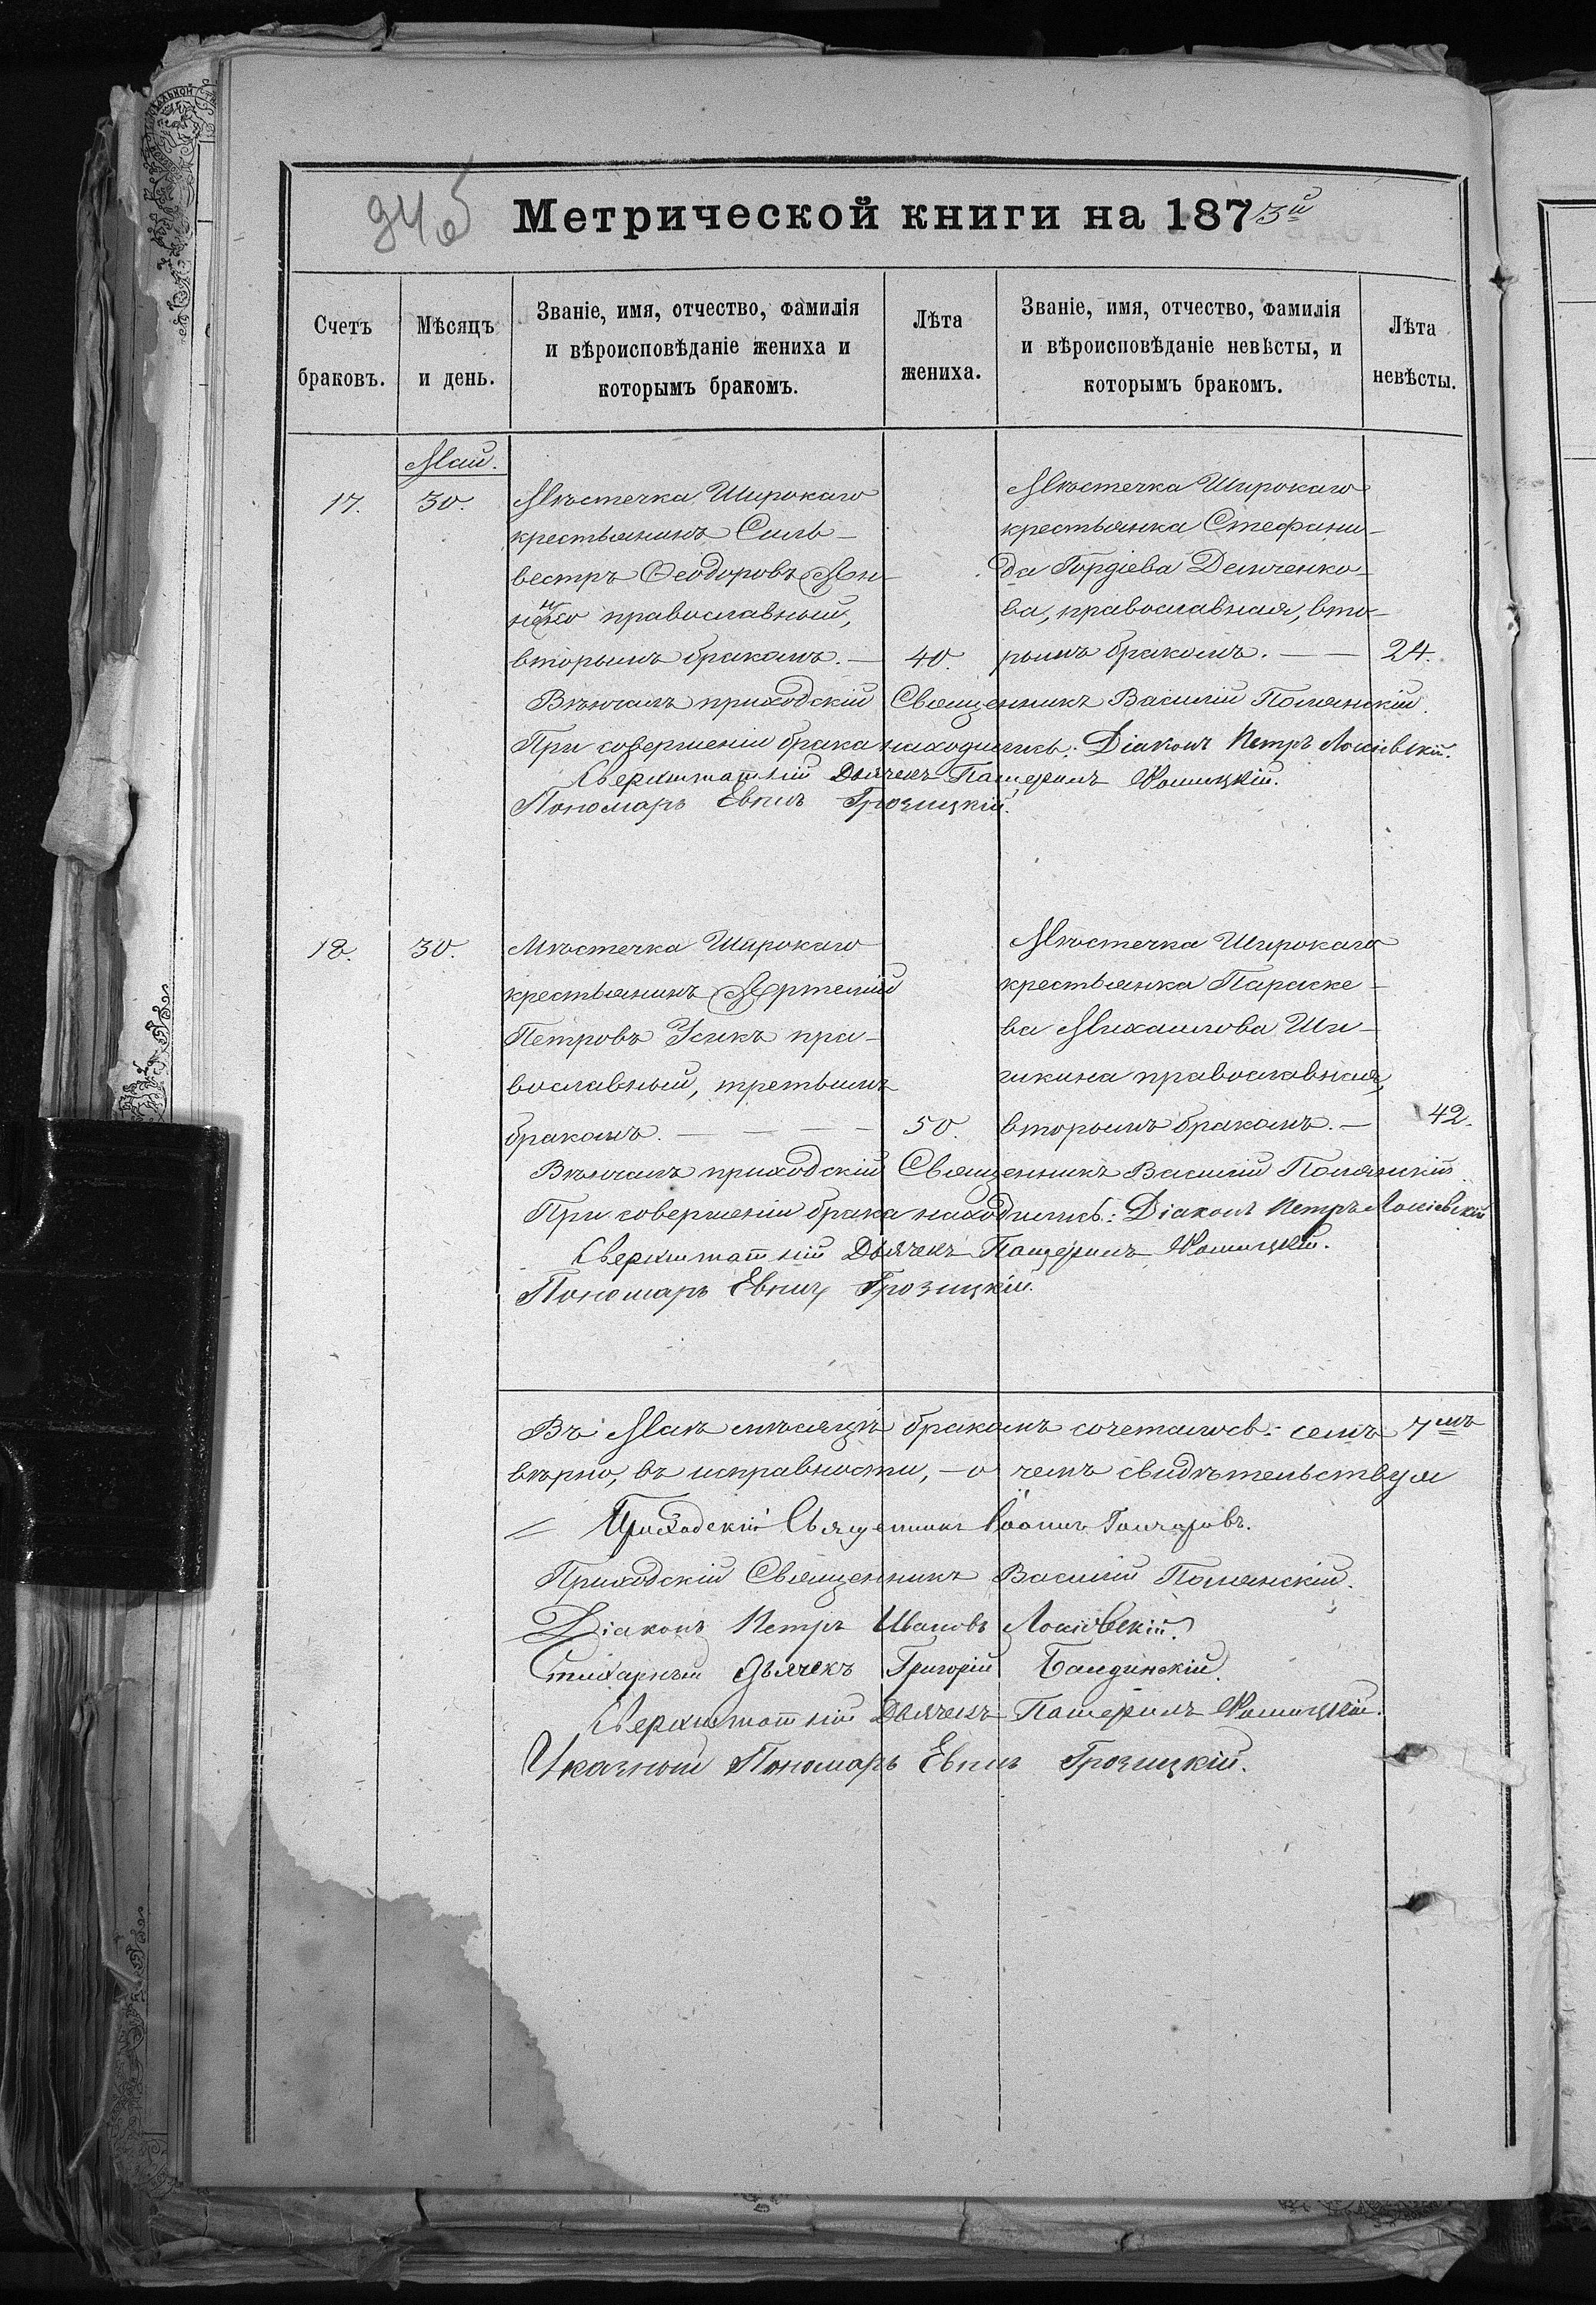 94об
Метрической книги на 1873й
Счетъ браковъ.
Мѣсяцъ и день.
Званіе, имя, отчество, фамилія и вѣроисповѣданіе жениха и которымъ бракомъ.
Лѣта жениха.
Званіе, имя, отчество, фамилія и вѣроисповѣданіе невѣсты, и которымъ бракомъ.
Лѣта невѣсты.
Май.
17.
30.
Мѣстечка Широкаго
крестьянинъ Силь-
вестръ Ѳеодоровъ
православный,
вторымъ бракомъ.—
40.
Мѣстечка Широкаго
крестьянка Стефани-
да Гордіева Демченко-
ва, православная, вто-
рымъ бракомъ.—
24.
Вѣнчалъ приходскій Священникъ Василій Полянскій.
При совершеніи брака находились: Діаконъ Петръ
Сверхштатній Дьячекъ
Пономарь Грозицкій.
18.
30.
Мѣстечка Широкаго
крестьянинъ Артемій
Петровъ Усикъ пра-
вославный, третьимъ
бракомъ.—
50.
Мѣстечка Широкаго
крестьянка Параске-
ва Михаилова Ши-
шкина православная,
вторымъ бракомъ.—
42.
Вѣнчалъ приходскій Священникъ Василій Полянскій.
При совершеніи брака находились: Діаконъ Петръ
Сверхштатній Дьячекъ
Пономарь Грозицкій.
Въ Маѣ мѣсяцѣ бракомъ сочеталось: семь 7мь
вѣрно, въ исправности,—о чемъ свидѣтельствуем
Приходскій Священникъ Іоаннъ Гончаровъ.
Приходскій Священникъ Василій Полянскій.
Діаконъ Петръ Ивановъ
Стихарный Дьячекъ Григорій
Сверхштатній Дьячекъ
Указной Пономарь Грозицкій.